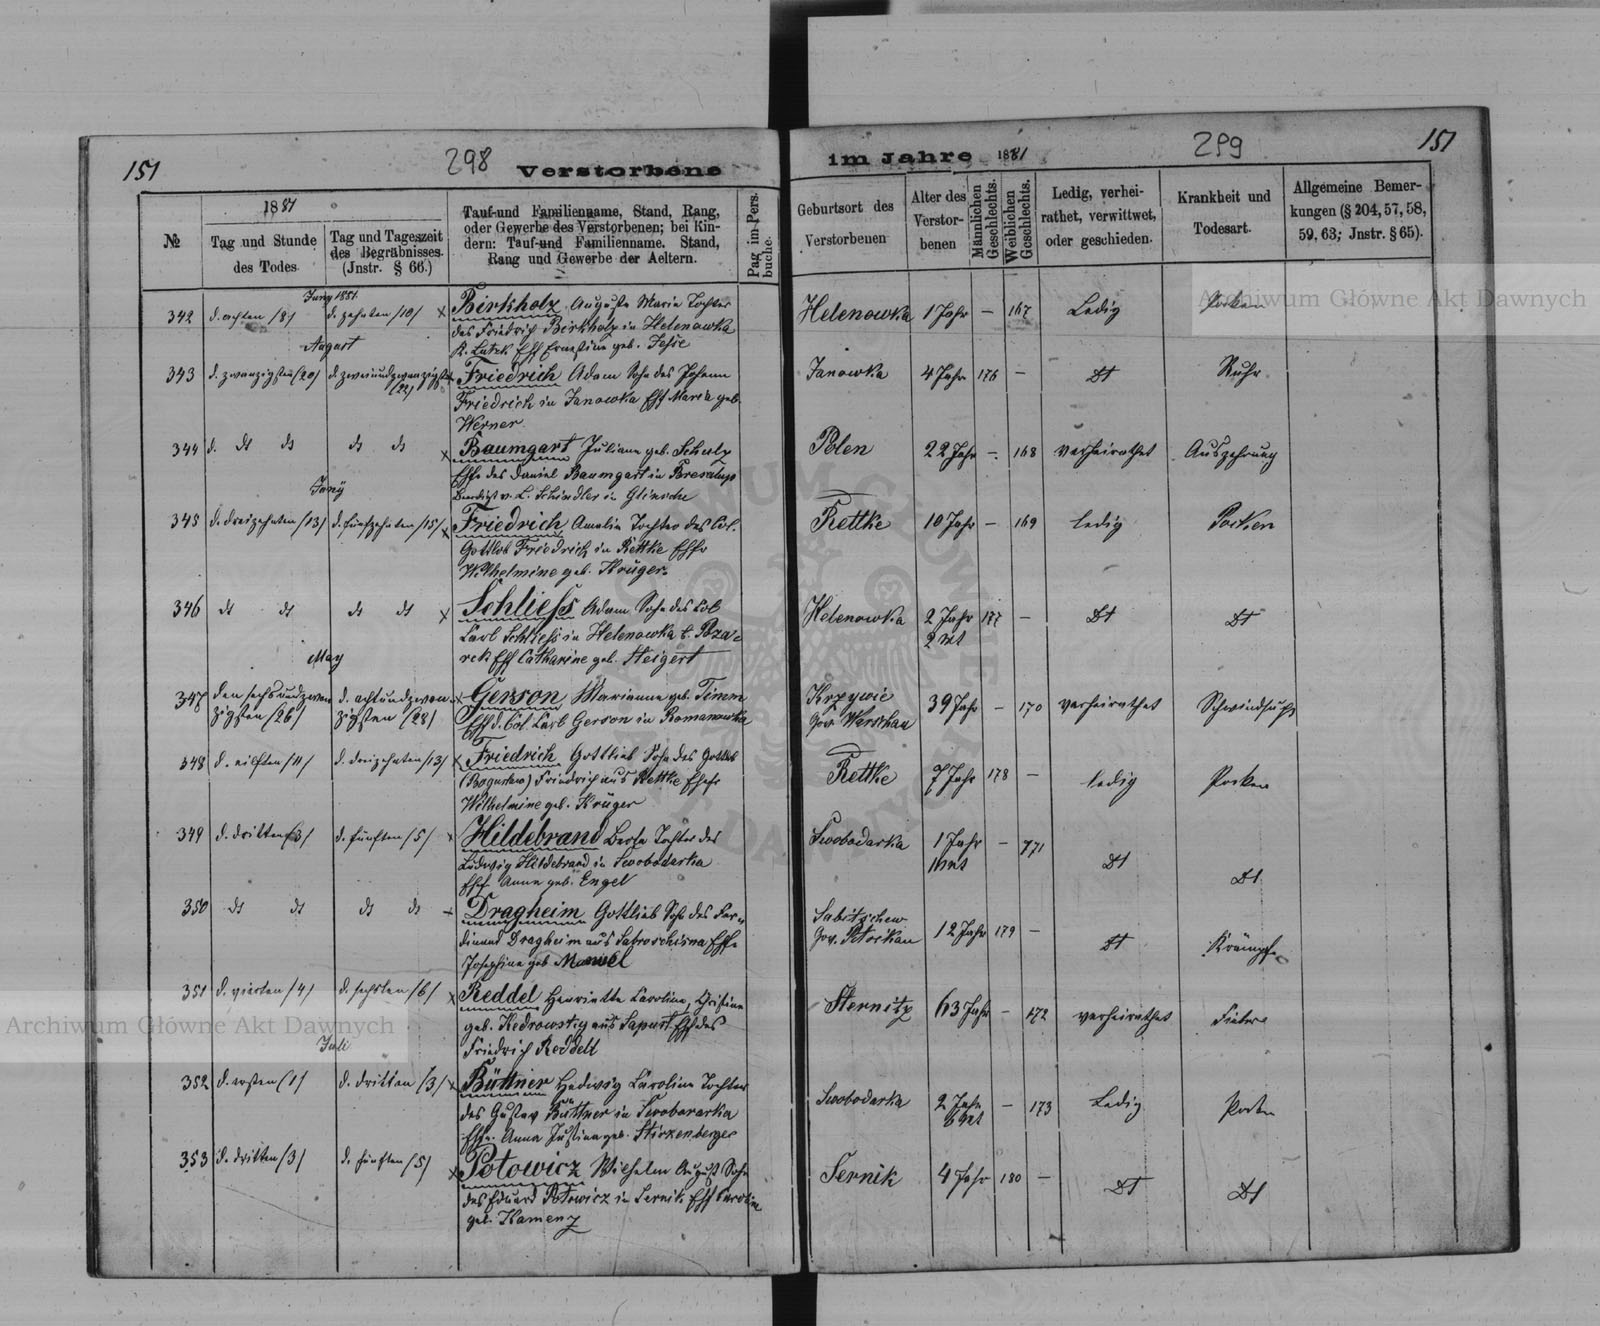 151
298
Verstorbene
№
1881
Tag und Stunde
des Todes.
Tag und Tageszeit
des Begräbnisses.
(Jnstr. § 66.)
Tauf-und Familienname, Stand, Rang,
oder Gewerbe des Verstorbenen; bei Kin-
dern: Tauf-und Familienname. Stand,
Rang und Gewerbe der Aeltern.
Pag im Pers.
buche.
Juny 1881.
342 d. achten /8/ d. zehnten /10/ x Birkholz Auguste Marie Tochter
des Friedrich Birkholz in Helenowka
K. Lutzk Ehf Ernestine geb.
August
343 d. zwanzigsten (20) d. zweiundzwanzigsten x Friedrich Adam Sohn des Johann
(22)
Friedrich in Janowka Ehf Maria geb.
Werner
344 d. dt dt dt dt x Baumgart Juliane geb. Schulz
Ehfr des Daniel Baumgart in
Beerdigt v. L. Schindler in
Juny
345 d. dreizehnten /13/ d. fünfzehnten /15/ x Friedrich Amalie Tochter des Col.
Gottlob Friedrich in Rettke Ehfr
Wilhelmine geb. Krüger.
346 dt dt dt dt x Schliefs Adam Sohn des Col
Carl Schliefs in Helenowka b. Roza-
rek Ehf Catharine geb. Steigert
May
347 den sechsundzwan d. achtundzwan- x Gerson Marianne geb.
zigsten (26) zigsten (28) Ehf d. Col. Carl Gerson in Romanowka
348 d. eilften /11/ d. dreizehnten /13/ x Friedrich Gottlieb Sohn des Gottlob
(Bogusław) Friedrich aus Rettke Ehefr
Wilhelmine geb. Krüger
349 d. dritten /3/ d. fünften /5/ x Hildebrand Berta Tochter des
Ludwig Hildebrand in Swobodarka
Ehef. Anna geb. Engel
350 dt dt dt dt x Dragheim Gottlieb Sohn des Fer-
dinand Dragheim aus Ehfr
Josephine geb Manuel
351 d. vierten /4/ d. sechsten /6/ x Reddel Henriette Caroline, Christine
geb. aus Sapust Ehf des
Friedrich Reddell
Juli
352 d. ersten /1/ d. dritten /3/ x Büttner Hedwig Caroline Tochter
des Gustav Büttner in Swobodarka
Ehfr. Anna Justine geb.
353 d. dritten /3/ d. fünften /5/ x Potowicz Wilhelm August Sohn
des Eduard Potowicz in Sernik Ehf Caroline
geb. Kamenz
im Jahre 1881
299
151
Geburtsort des
Verstorbenen
Alter des
Verstor-
benen
Männlichen
Geschlechts.
Weiblichen
Geschlechts.
Ledig, verhei-
rathet, verwittwet,
oder geschieden.
Krankheit und
Todesart.
Allgemeine Bemer-
kungen (§ 204, 57, 58,
59, 63; Jnstr. § 65).
Helenowka 1 Jahr – 167 Ledig Pocken
Janowka 4 Jahr 176 – dt Ruhr
Polen 22 Jahr – 168 verheirathet Auszehrung
Rettke 10 Jahr – 169 ledig Pocken
Helenowka 2 Jahr 177 – dt dt
2 Mt
Krzywie 39 Jahr – 170 verheirathet Schwindsucht
Gov. Warschau
Rettke 7 Jahr 178 – ledig Pocken
Swobodarka 1 Jahr – 171 dt dt
Gov. Petrokau 12 Jahr 179 – dt Krämpfe
Sternitz 63 Jahr – 172 verheirathet Fieber
Swobodarka 2 Jahr – 173 Ledig Pocken
6 Mt
Sernik 4 Jahr 180 – dt dt
Archiwum Główne Akt Dawnych
Archiwum Główne Akt Dawnych